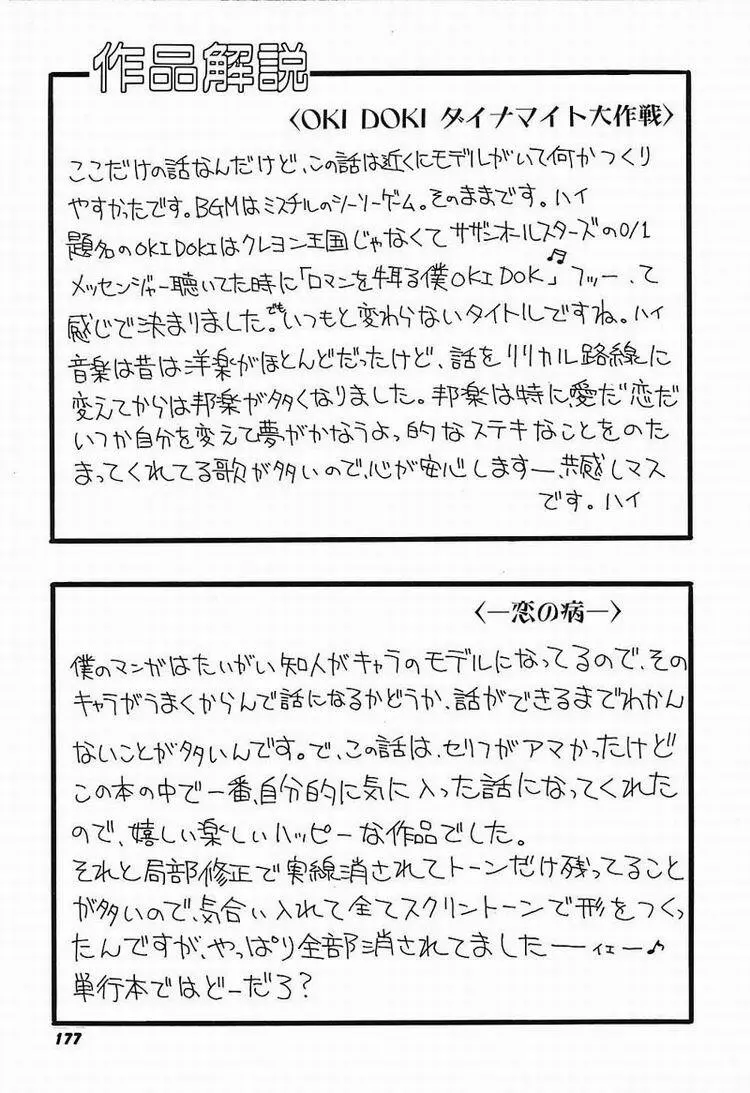 作品解説
〈OKI DOKI ダイナマイト大作戦〉
ここだけの話なんだけど、この話は近くにモデルがいて何かつくり
やすかったです。BGMはミスチルのシーソーゲーム。そのままです。ハイ
題名のOKI DOKIはクレヨン王国じゃなくてサザンオールスターズの0/1
メッセンジャー聴いてた時に「ロマンを牛耳る僕OKI DOK♫」フッー、て
感じで決まりました。でもいつもと変わらないタイトルですね。ハイ
音楽は昔は洋楽がほとんどだったけど、話をリリカル路線に
変えてからは邦楽が多くなりました。邦楽は特に、愛だ恋だ
いつか自分を変えて夢がかなうよっ的なステキなことをのた
まってくれてる歌が多いので、心が安心しますー、共感しマス
です。ハイ
〈―恋の病―〉
僕のマンガはたいがい知人がキャラのモデルになってるので、その
キャラがうまくからんで話になるかどうか、話ができるまでわかん
ないことが多いんです。で、この話は、セリフがアマかったけど
この本の中で一番、自分的に気に入った話になってくれた
ので、嬉しい楽しいハッピーな作品でした。
それと局部修正で実線消されてトーンだけ残ってること
が多いので、気合い入れて全てスクリントーンで形をつくっ
たんですが、やっぱり全部消されてました――ィェー♪
単行本ではどーだろ？
177